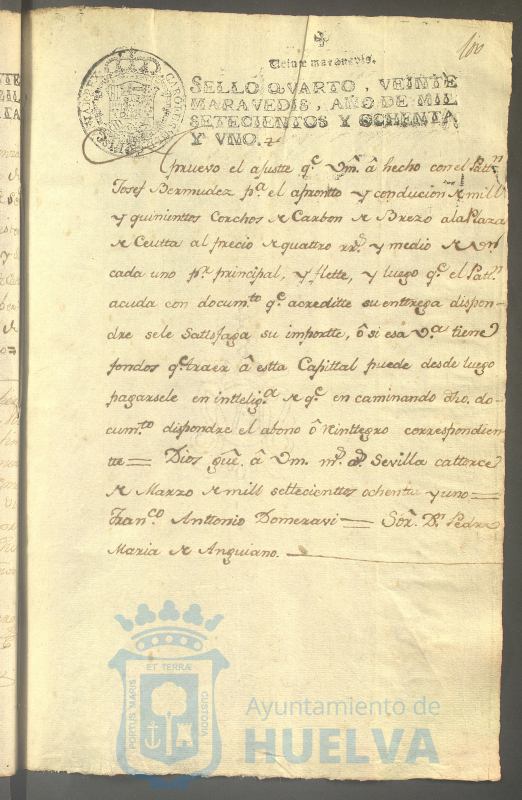 100
Veinte maravedis.
SELLO QVARTO, VEINTE
MARAVEDIS, AÑO DE MIL
SETECIENTOS Y OCHENTA
Y VNO.
Apruevo el ajuste qe. Vm. â hecho con el Pattn.
Josef Bermudez pa. el apronto y conducion de mill
y quinientos Corchos de Carbon de Brezo ala Plaza
de Ceutta al precio de quattro rrs. y medio de Vn.
cada uno pr. principal, y flette, y luego qe. el Pattn.
acuda con documto. qe. acreditte su enttrega dispon-
dre sele Sattisfaga su importte, ô si esa Va. tiene
fondos qe. traer â estta Capittal puede desde luego
pagarsele en intteliga. de qe. en caminando dho. do-
cumto. dispondre el abono ô Reinttegro correspondien-
te = Dios gue. â Vm. ms. as. Sevilla cattorce
de Marzo de mill settecienttos ochenta y uno =
Franco. Anttonio Domezain = Sor. Dn. Pedro
Maria de Anguiano.
PORTUS MARIS
ET TERRÆ
CUSTODIA
Ayuntamiento de
HUELVA